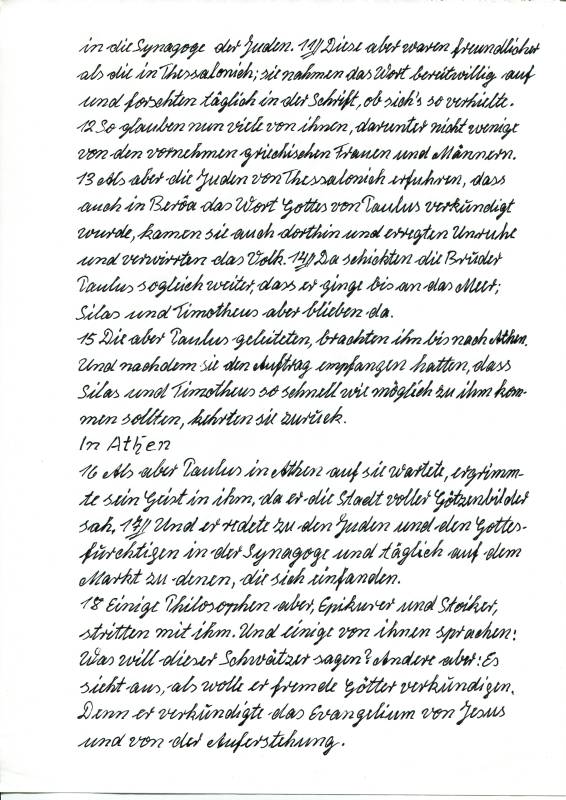 in die Synagoge der Juden. 11// Diese aber waren freundlicher
als die in Thessalonich; sie nahmen das Wort bereitwillig auf
und forschten täglich in der Schrift, ob sich's so verhielte.
12 So glauben nun viele von ihnen, darunter nicht wenige
von den vornehmen griechischen Frauen und Männern.
13 Als aber die Juden von Thessalonich erfuhren, dass
auch in Beröa das Wort Gottes von Paulus verkündigt
wurde, kamen sie auch dorthin und erregten Unruhe
und verwirrten das Volk. 14// Da schickten die Brüder
Paulus sogleich weiter, dass er ginge bis an das Meer;
Silas und Timotheus aber blieben da.
15 Die aber Paulus geleiteten, brachten ihn bis nach Athen.
Und nachdem sie den Auftrag empfangen hatten, dass
Silas und Timotheus so schnell wie möglich zu ihm kom-
men sollten, kehrten sie zurück.
In Athen
16 Als aber Paulus in Athen auf sie wartete, ergrimm-
te sein Geist in ihm, da er die Stadt voller Götzenbilder
sah. 17// Und er redete zu den Juden und den Gottes-
fürchtigen in der Synagoge und täglich auf dem
Markt zu denen, die sich einfanden.
18 Einige Philosophen aber, Epikurer und Stoiker,
stritten mit ihm. Und einige von ihnen sprachen:
Was will dieser Schwätzer sagen? Andere aber: Es
sieht aus, als wolle er fremde Götter verkündigen.
Denn er verkündigte das Evangelium von Jesus
und von der Auferstehung.